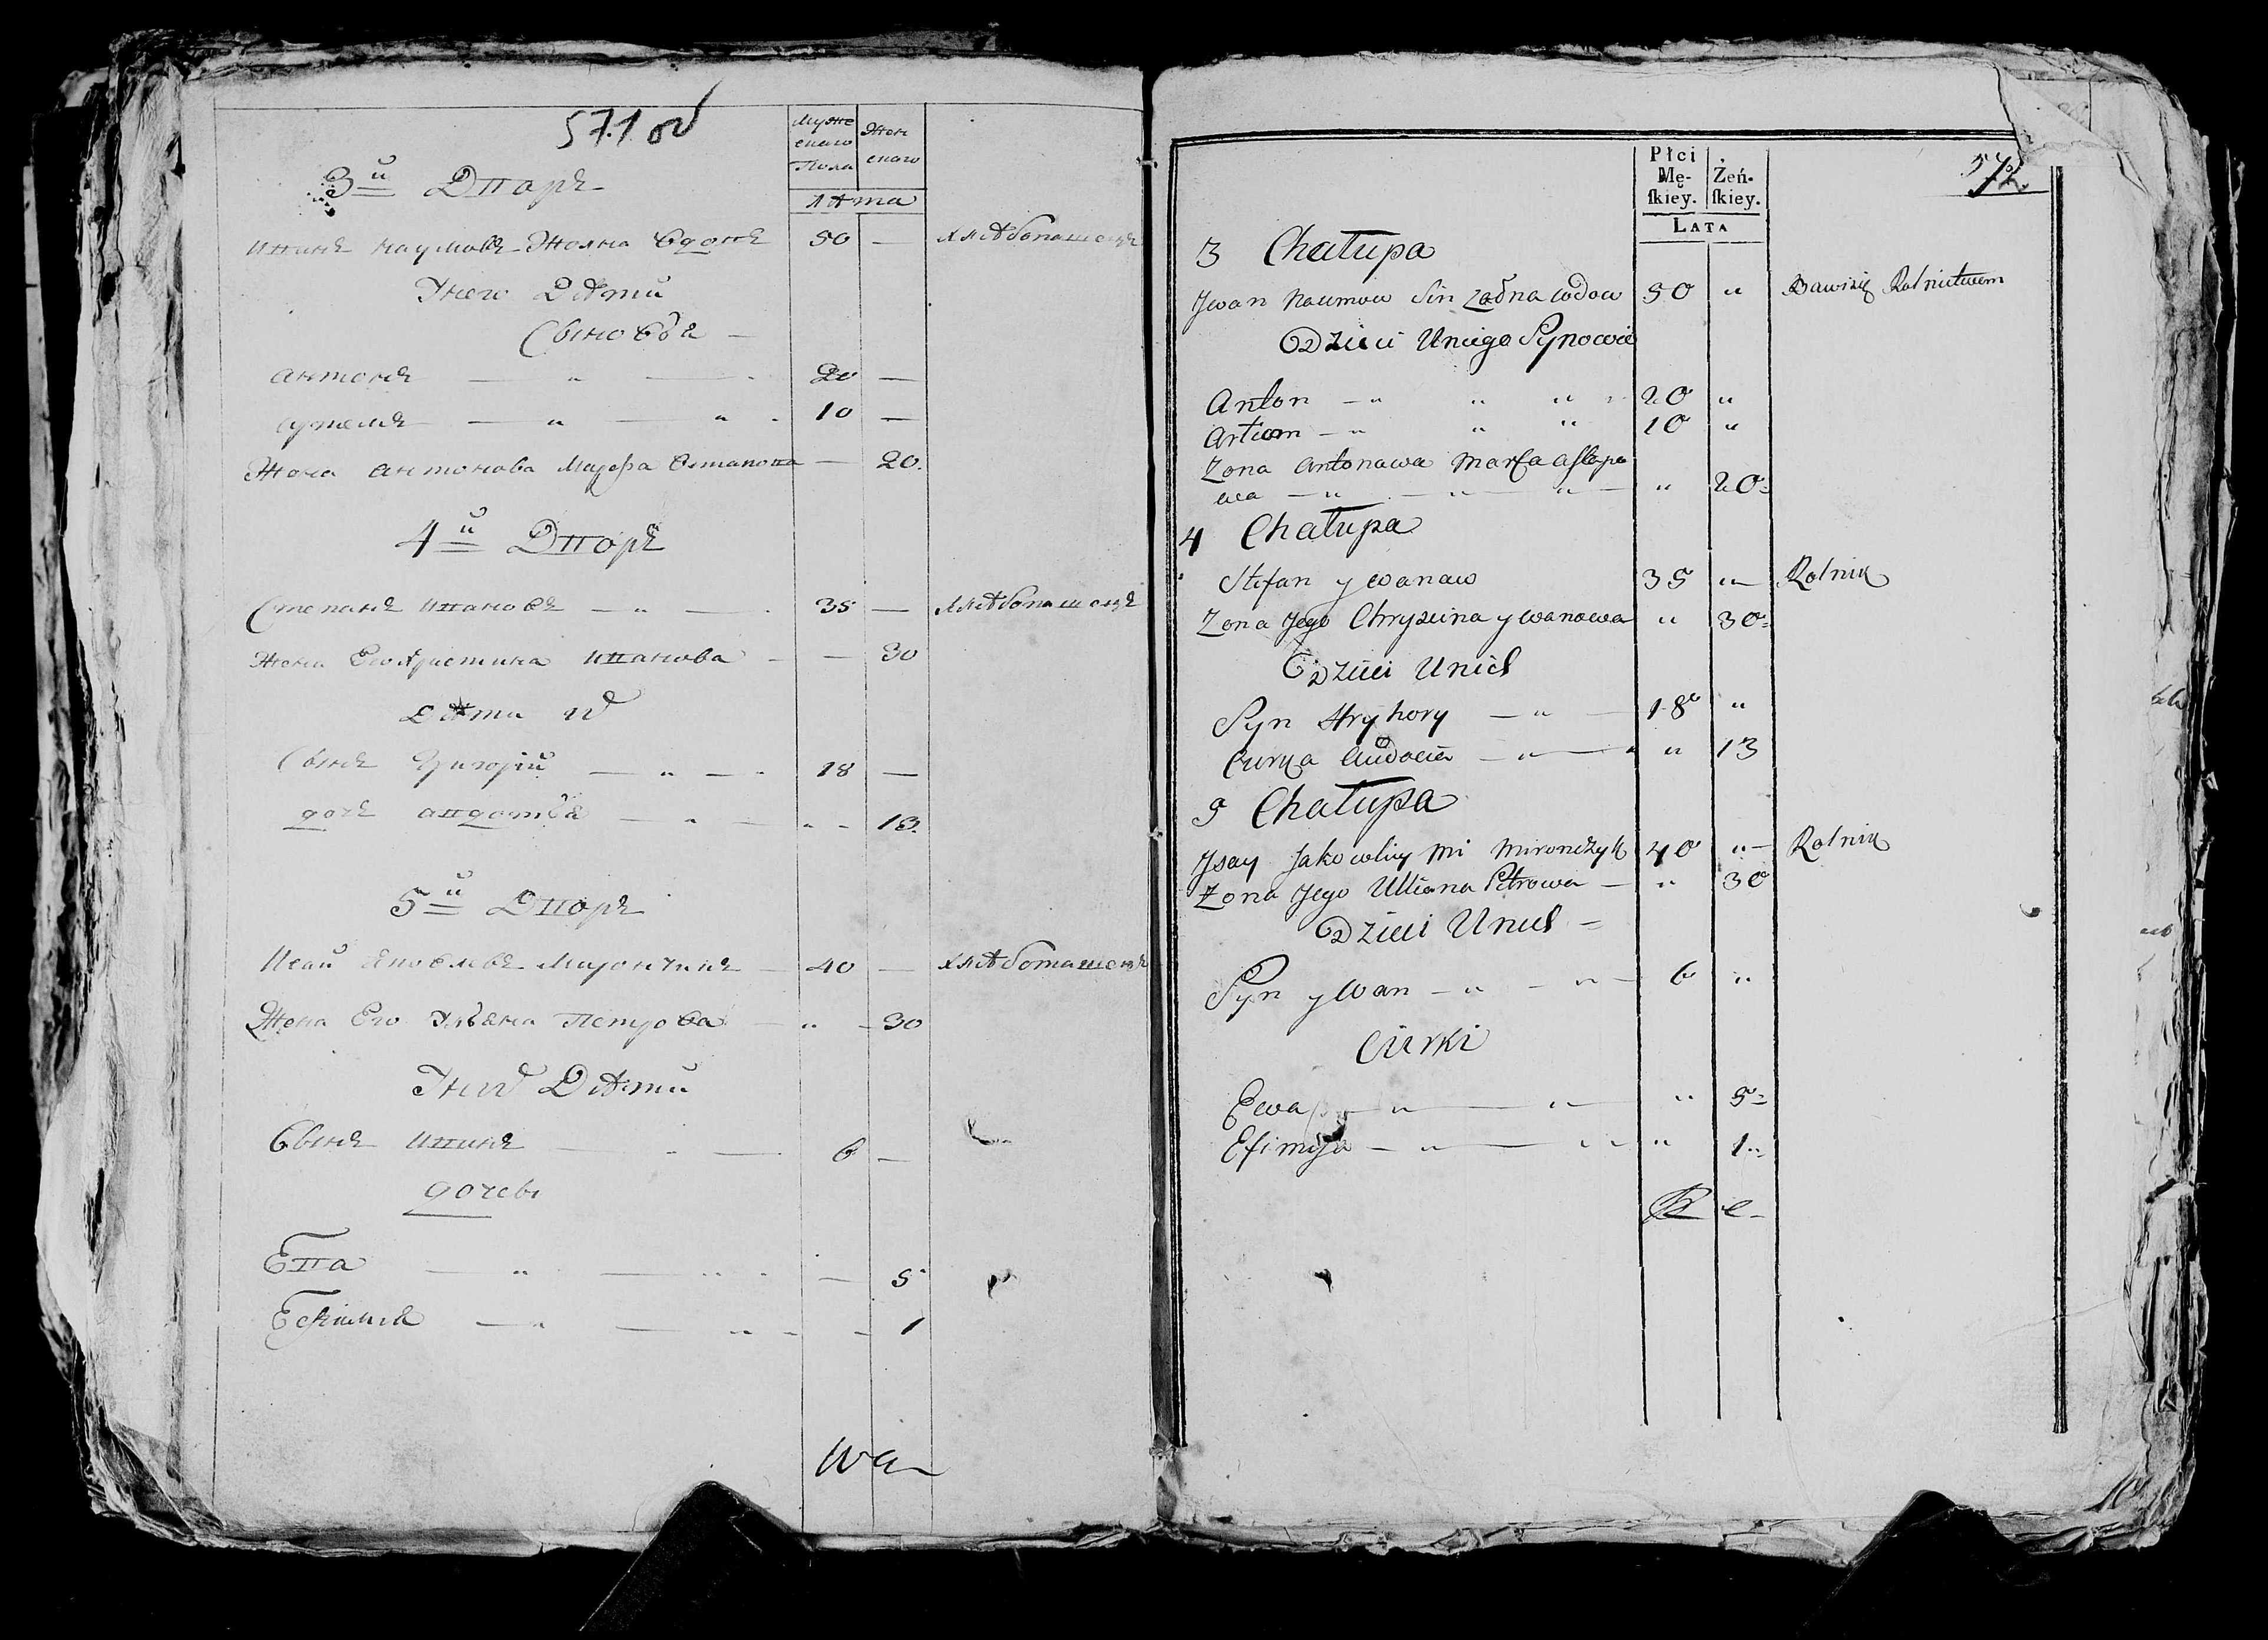 571 об
Муже
скаго
Пола
Жен
скаго
Лѣта
3й Дворъ
Иванъ Наумовъ Жолна вдовъ 50 — хлѣбопашецъ
У него Дѣти
Сыновья —
Антонъ — „ — 20 —
Артемъ — „ — „ 10 —
Жена Антонова Марфа Остапова — 20.
4й Дворъ
Степанъ Ивановъ — „ — 35 — хлѣбопашецъ
Жена Его Христина Иванова — — 30
Дѣти их
Сынъ Григорій — „ — 18 —
дочь Авдотья — „ — „ - 13.
5й Дворъ
Исай Яковлевъ Мирончикъ — 40 — хлѣбопашецъ
Жена Его Ульяна Петрова — „ — 30
У них Дѣти
Сынъ Иванъ — 6 —
дочери
Ева — „ — „ — 5
Ефимия — „ — „ - - 1
572
Płci
Mę-
ſkiey.
Żeń-
ſkiey.
LATA
3 Chałupa
Jwan Naumow Sin Zołna wdow 50 „ Bawi się Rolnictwem
Dzieci U niego Synowie
Anton — „ „ „ 20 „
Artiom — „ „ „ 10 „
Zona Antonawa Marfa Astapo
wa — „ — „ — „ — „ 20
4 Chałupa
Stefan ywanaw 35 „— Rolnik
Zona Jego Chrystina ywanowa „ 30
Dzieci U nich
Syn Hryhory — „ — 18 „
Curka Audocia — „ — „ „ 13
5 Chałupa
Jsay Jakowliw Mirończyk 40 „— Rolnik
Zona Jego Ulliana Petrowa — „ 30
Dzieci U nich =
Syn ywan — „ — „ — 6 „
Curki
Ewa — „ — „ — „ 5
Efimija — „ — „ „ „ 1